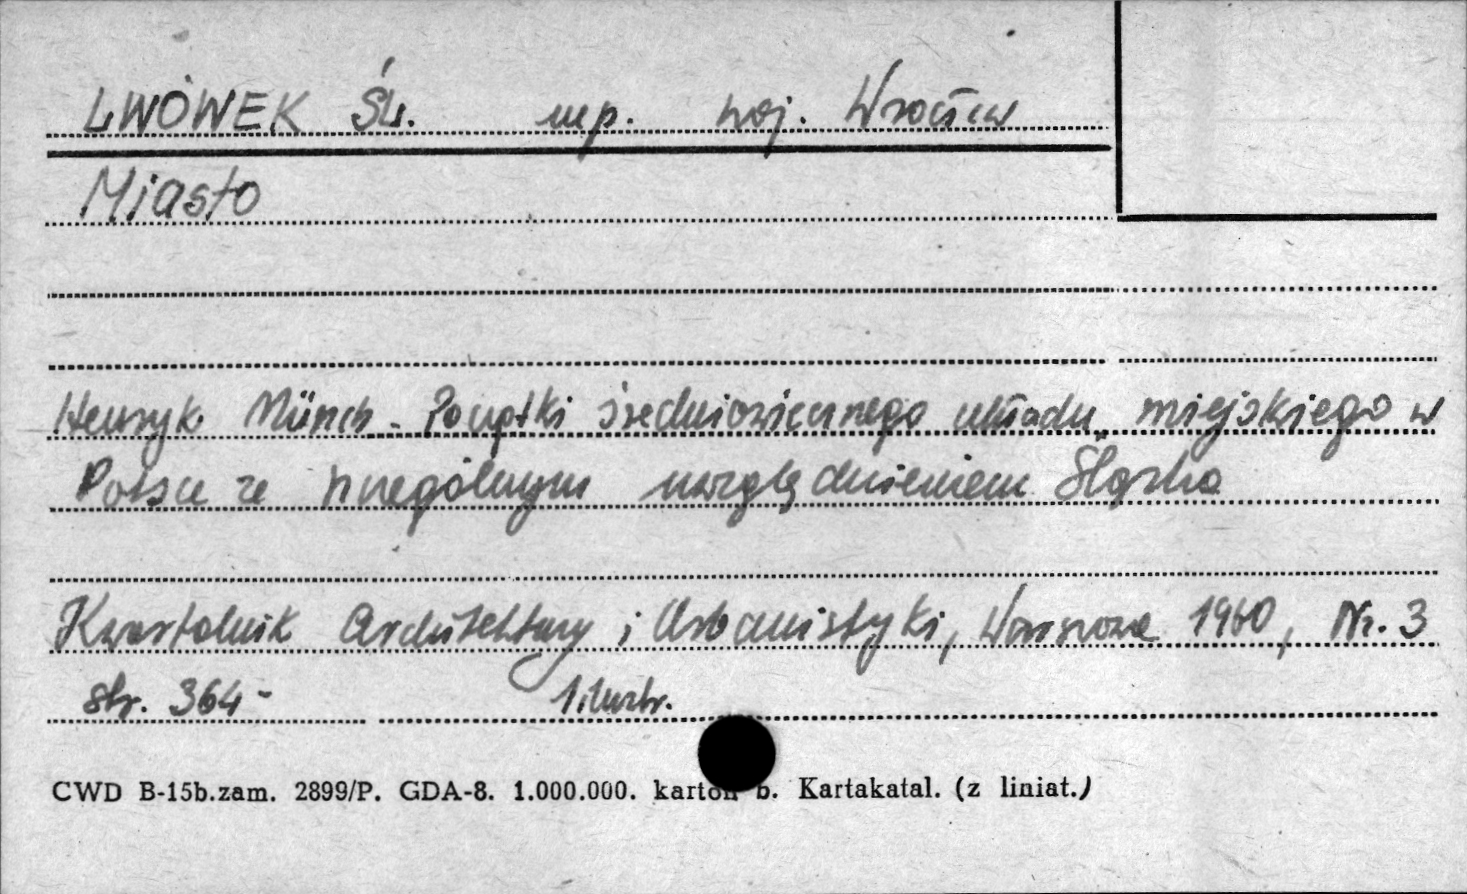 LWÓWEK ŚL. mp. woj. Wrocław
Miasto
Henryk Münch - Początki średniowiecznego układu miejskiego w
Polsce ze szczególnym uwzględnieniem Śląska
Kwartalnik Architektury i Urbanistyki, Warszawa 1960, Nr. 3
str. 364 - 1 ilustr.
CWD B-15b.zam. 2899/P. GDA-8. 1.000.000. karton b. Kartakatal. (z liniat.)